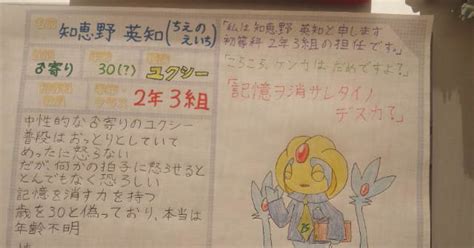 知恵野 英知(ちえの
えいち)
♂寄り
30(?)
ユクシー
2年3組
中性的な♂寄りのユクシー
普段はおっとりとしていて
めったに怒らない
だが何かの拍子に怒らせると
とんでもなく恐ろしい
記憶を消す力を持つ
歳を30と偽っており、本当は
年齢不明
「私は知恵野英知と申します
初等科2年3組の担任です。」
「こらこら、ケンカはだめですよ?」
「記憶ヲ消サレタイノ
デスカ?」